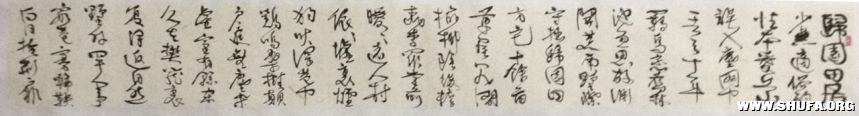 歸園田居
少無適俗韻
性本愛丘山
誤入塵網中
一去三十年
羈鳥戀舊林
池魚思故淵
開荒南野際
守拙歸園田
方宅十餘畝
草屋八九間
榆柳蔭後檐
桃李羅堂前
曖曖遠人村
依依墟里煙
狗吠深巷中
雞鳴桑樹顛
戶庭無塵雜
虛室有餘閒
久在樊籠裏
復得返自然
野外罕人事
窮巷寡輪鞅
白日掩荊扉
WWW.SHUFA.ORG
WWW.SHUFA.ORG